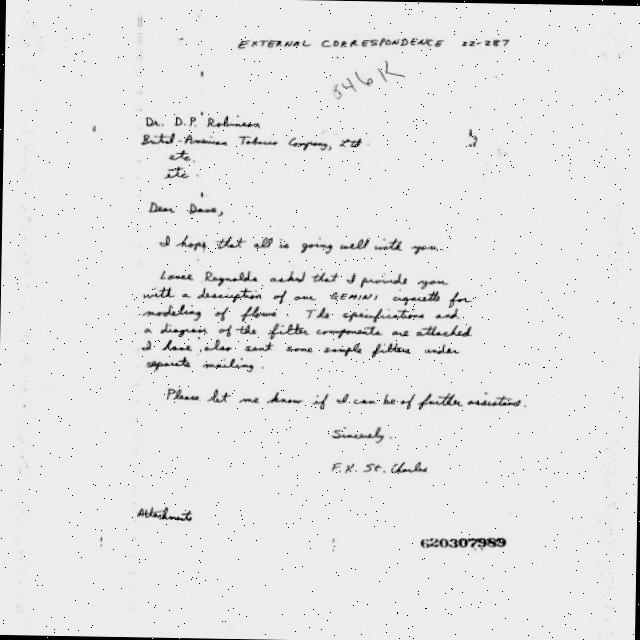 EXTERNAL CORRESPONDENCE 22-287
046K
Dr. D.P. Robinson
British-American Tobacco Company, Ltd.
etc.
etc.
Dear Dave,
I hope that all is going well with you.
Reynolds asked that I provide you
with a description of our GEMINI cigarette for
modeling of flows. The specifications and
a diagram of the filter components are attached
I have also sent some sample filters under
separate mailing.
Please let me know if I can be of further assistance.
Sincerely,
F.K. St. Charles
Attachments
620307989